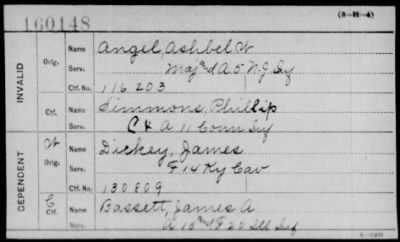 160148
(3-H-4)
INVALID
Orig.
Name Angel, Ashbel W
Serv. Maj and A 5" N.J Inf
Ctf. No. 116203
Ctf.
Name Simmons, Phillip
Serv. C & A 11 Conn Inf
DEPENDENT
W
Orig.
Name Dickey, James
Serv. F 14 Ky Cav
Ctf. No. 130809
C
Ctf.
Name Bassett, James A
Serv. F 20 Ill Inf